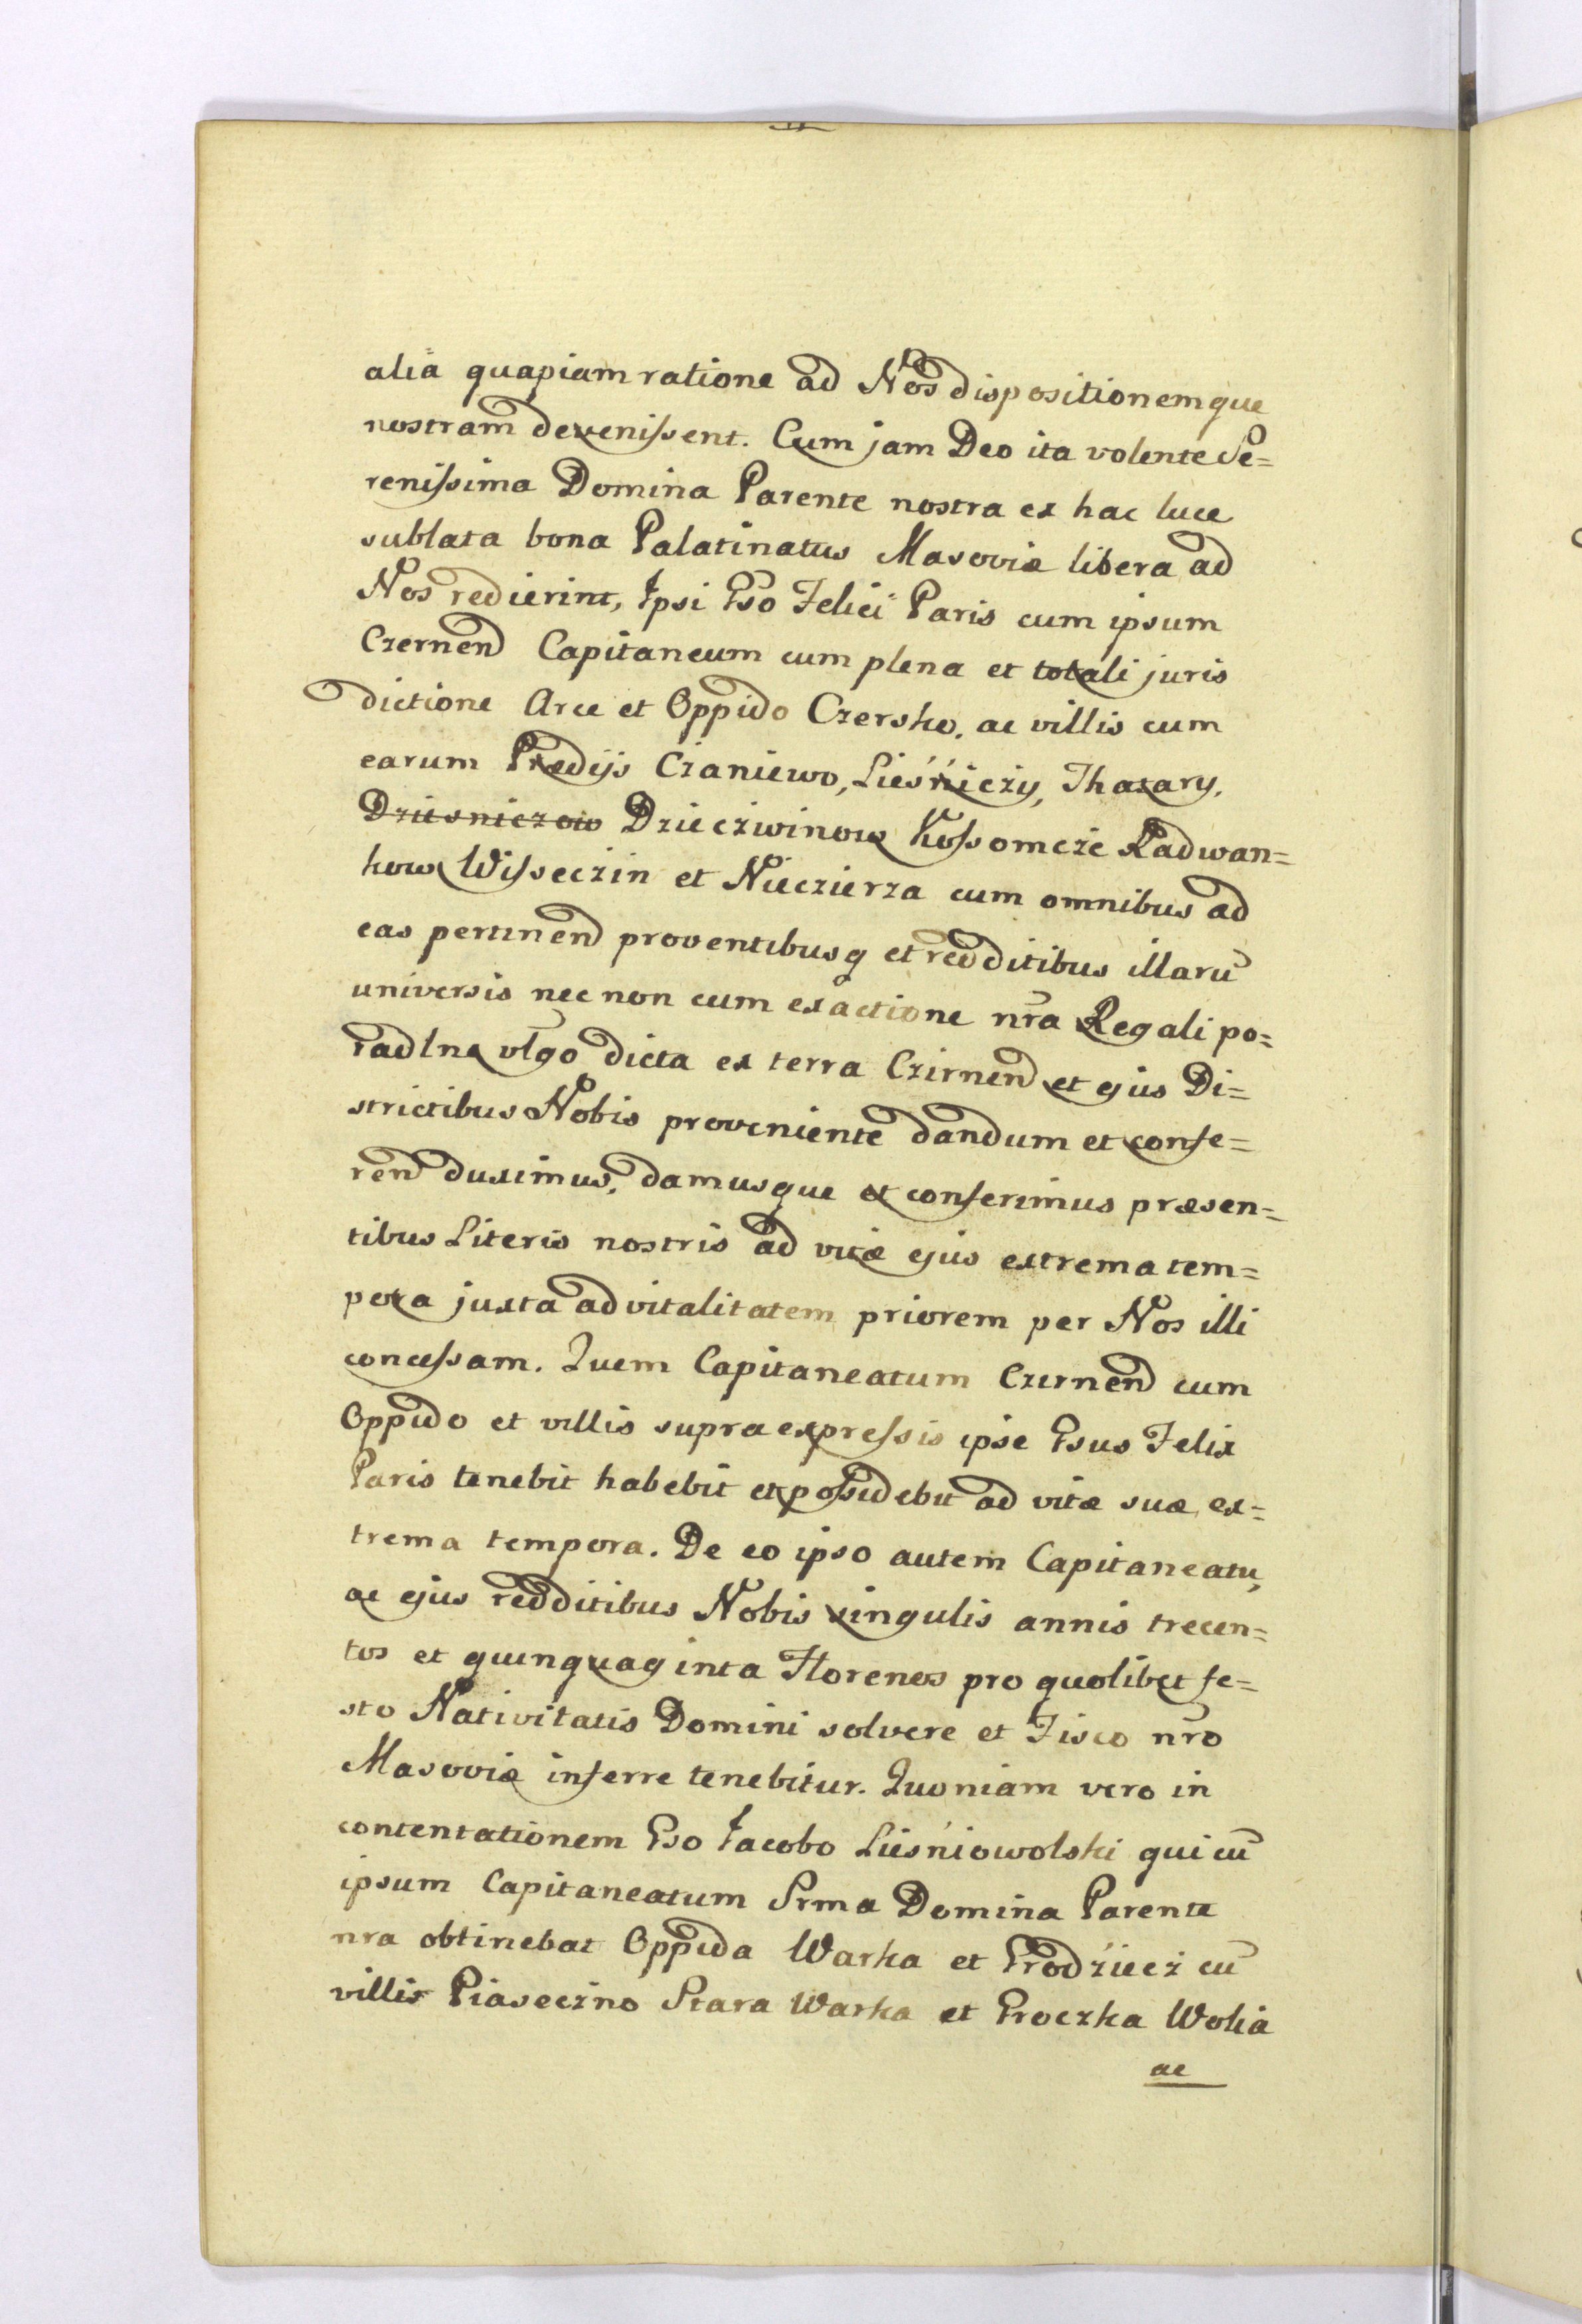 alia quapiam ratione ad Nos dispositionemque
nostram devenissent. Cum jam Deo ita volente Se=
renissima Domina Parente nostra ex hac luce
sublata bona Palatinatus Masoviæ libera ad
Nos redierint, Ipsi Gso Felici Paris cum ipsum
Czernen Capitaneum cum plena et totali juris
dictione Arce et Oppido Czersko, ac villis cum
earum Prædijs Czaniewo, Lieśniczy, Thatary,
Dziesniczow Dziecziwinow Kossomcze Radwan=
kow Wisseczin et Nieczierza cum omnibus ad
eas pertinen proventibusq et redditibus illarū
universis nec non cum exactione nra Regali po=
radlne vlgo dicta ex terra Czirnen et ejus Di=
strictibus Nobis proveniente dandum et confe=
ren duximus, damusque et conferimus præsen=
tibus Literis nostris ad vitæ ejus extrema tem=
pora juxta advitalitatem priorem per Nos illi
concessam. Quem Capitaneatum Czirnen cum
Oppido et villis supra expressis ipse Gsus Felix
Paris tenebit habebit et possidebit ad vitæ suæ ex=
trema tempora. De eo ipso autem Capitaneatu,
ac ejus redditibus Nobis singulis annis trecen=
tos et quinquaginta Florenos pro quolibet fe=
sto Nativitatis Domini solvere et Fisco nro
Masoviæ inferre tenebitur. Quoniam vero in
contentationem Gso Jacobo Lieśniowolski qui cū
ipsum Capitaneatum Srma Domina Parente
nra obtinebat Oppida Warka et Grodziecz cū
villis Piaseczno Stara Warka et Groczka Wolia
ac